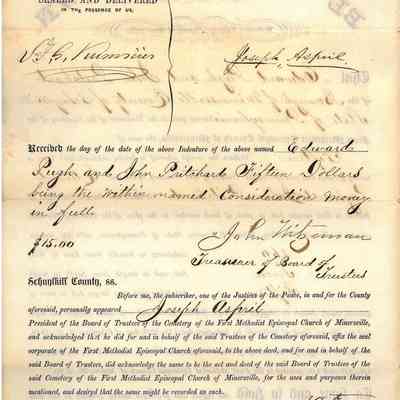 SEALED, AND DELIVERED
IN THE PRESENCE OF US,
Joseph, Aspril
Received the day of the date of the above Indenture of the above named Edward
Pugh and John Pritchard Fifteen Dollars
being the within named Consideration money
in full
$15.00
John
Treasurer of Board of
Trustees
Schuylkill County, ss.
Before me, the subscriber, one of the Justices of the Peace, in and for the County
aforesaid, personally appeared Joseph Aspril
President of the Board of Trustees of the Cemetery of the First Methodist Episcopal Church of Minersville, and
acknowledged that he did for and in behalf of the said Trustees of the Cemetery aforesaid, affix the seal
corporate of the First Methodist Episcopal Church aforesaid, to the above deed, and for and in behalf of the
said Board of Trustees, did acknowledge the same to be the act and deed of the said Board of Trustees of the
said Cemetery of the First Methodist Episcopal Church of Minersville, for the uses and purposes therein
mentioned, and desired that the same might be recorded as such.